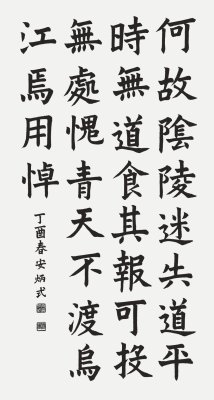 何故陰陵迷失道平
時無道食其報可投
無處愧青天不渡烏
江焉用悼
丁酉春安炳式